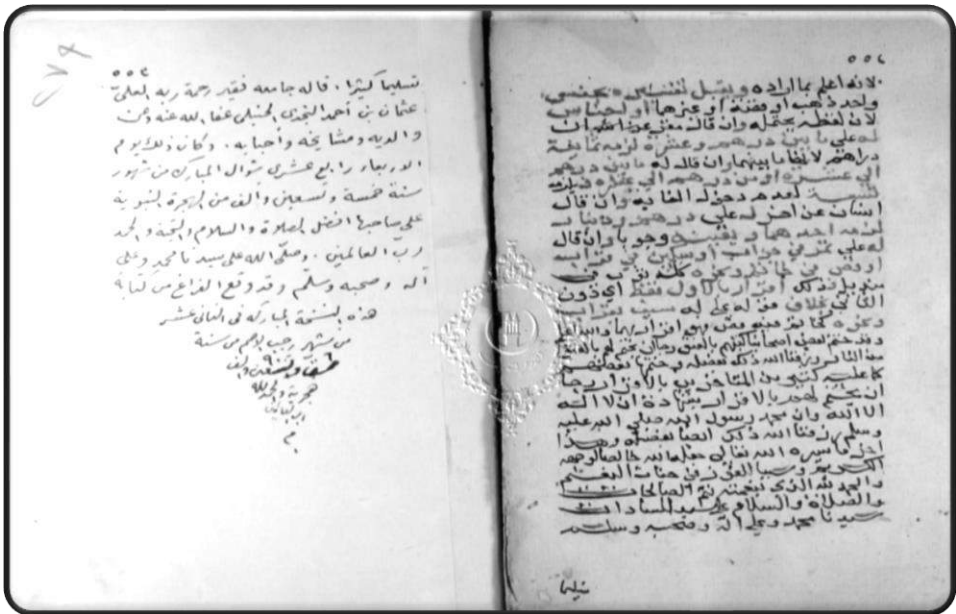 ٥٥٤
لانه اعلم بما اراده ويقبل تفسيره
واحد ذهب او فضة او غيرهما او اجناس
لان لفظه يحتمله وان قال
له علي ما بين درهم وعشرة لزمه ثمانية
دراهم لانها ما بينهما وان قال له ما بين درهم
الي عشرة او من درهم الي عشرة
تسعة لعدم دخول الغاية وان قال
انسان عن اخر له علي درهم او دينار
لزمه احدهما ويعينه وجوبا وان قال
له علي تمر في جراب او سكين في قراب
او فص في خاتم ونحوه كله
اقرار بالاول فقط اي دون
الثاني بخلاف قوله له سيف بقراب
ونحوه
وقد ختم بعض اصحابنا كتبهم بالعتق رجاء
من النار رزقنا الله ذلك بفضله وختمها بعضهم
كما عليه كثير من المتاخرين بالاقرار رجا
ان يختم لهم بالاقرار بشهادة ان لا اله
الا الله وان محمد رسول الله صلي الله عليه
وسلم رزقنا الله ذلك ايضا بفضله وهذا
اخر ما يسره الله تعالي جعله الله خالصا لوجهه
الكريم وسببا للفوز في جنات النعيم
والحمد لله الذي بنعمته تتم الصالحات
والصلاة والسلام علي سيد السادات
سيدنا محمد وعلي اله وصحبه وسلم
تسليما
٥٥٤
تسليما كثيرا، قاله جامعه فقير رحمة ربه العلي
عثمان بن أحمد النجدي الحنبلي عفا الله عنه وعن
والديه ومشايخه وأحبابه، وكان ذلك يوم
الاربعاء رابع عشري شوال المبارك من شهور
سنة خمسة وتسعين والف من الهجرة النبوية
على صاحبها افضل الصلاة والسلام والحمد
رب العالمين، وصلى الله على سيدنا محمد وعلى
آله وصحبه وسلم وقد وقع الفراغ من كتابة
هذه النسخة المباركة في الثاني عشر
من شهر رجب الاصم من سنة
وتسعين والف
هجرية والحمد لله
رب العالمين
م